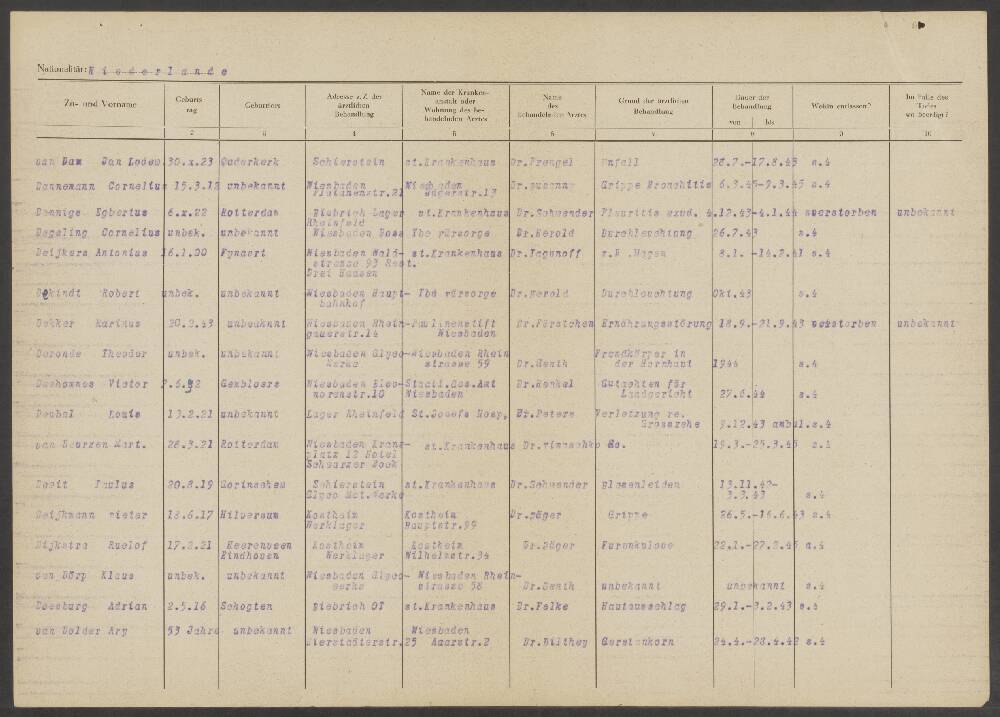 Nationalität: Niederlande
Zu- und Vorname
Geburts
tag
Geburtsort
Adresse z.Z. der
ärztlichen
Behandlung
Name der Kranken-
anstalt oder
Wohnung des be-
handelnden Arztes
Name
des
behandelnden Arztes
Grund der ärztlichen
Behandlung
Dauer der
Behandlung
von bis
Wohin entlassen?
Im Falle des
Todes
wo beerdigt?
2 3 4 5 6 7 8 9 10
van Dam Jan Lodew. 30.x.23 Ouderkerk Schierstein st.Krankenhaus Dr.Prengel Unfall 28.7.-17.8.43 s.4
Dannemann Cornelius 15.3.12 unbekannt Wiesbaden Wiesbaden Grippe Bronchitis 6.3.45-9.3.45 s.4
Platanenstr.21 Jägerstr.13
Dennige Egbertus 6.x.22 Rotterdam Biebrich Lager st.Krankenhaus Dr.Schwender Pleuritis exud. 4.12.43-4.1.44 verstorben unbekannt
Rheinfeld
Degeling Cornelius unbek. unbekannt Wiesbaden Tbc Fürsorge Dr.Herold Durchleuchtung 26.7.43 s.4
Deijkers Antonius 16.1.00 Fynaart Wiesbaden Wald- st.Krankenhaus Dr.Jagunoff Magen 8.1.-14.2.41 s.4
strasse 93 Rest.
Drei Hasen
Dekindt Robert unbek. unbekannt Wiesbaden Haupt- Tbc Fürsorge Dr.Herold Durchleuchtung Okt.43 s.4
bahnhof
Dekker Marinus 20.2.43 unbekannt Wiesbaden Rhein- Paulinenstift Dr.Fürstchen Ernährungsstörung 18.9.-21.9.43 verstorben unbekannt
gauerstr.14 Wiesbaden
Deronde Theodor unbek. unbekannt Wiesbaden Glyco- Wiesbaden Rhein Fremdkörper in
Werke strasse 59 Dr.Zenth der Hornhaut 1944 s.4
Deshommes Victor 7.6.92 Gembloers Wiesbaden Eleo- Staatl.Ges.Amt Dr.Henkel Gutachten für
norenstr.10 Wiesbaden Landgericht 27.6.44 s.4
Deubel Louis 13.2.21 unbekannt Lager Rheinfeld St.Josefs Hosp. Dr.Peters Verletzung re.
Grosszehe 9.12.43 ambul.s.4
van Deurzen Mart. 28.3.21 Rotterdam Wiesbaden Kranz- st.Krankenhaus 19.3.-25.3.45
platz 12 Hotel
Schwarzer Bock
Dezit Paulus 20.8.19 Gorinschem Schierstein st.Krankenhaus Dr.Schwender Blasenleiden 13.11.42-
Glyco Met.Werke 3.3.43 s.4
Deijkmann Pieter 18.6.17 Hilversum Kostheim Kostheim Dr.Jäger Grippe 26.5.-16.6.43 s.4
Werklager Hauptstr.99
Dijkstra Ruelof 17.2.21 Heerenveen Kostheim Kostheim Dr.Jäger Furunkulose 22.1.-27.2.45 s.4
Eindhoven Werklager Wilhelmstr.34
van Dörp Klaus unbek. unbekannt Wiesbaden Glyco- Wiesbaden Rhein-
werke strasse 58 Dr.Zenth unbekannt unbekannt s.4
Doesburg Adrian 2.5.16 Schogten Biebrich OT st.Krankenhaus Dr.Felke Hautausschlag 29.1.-3.2.43 s.4
van Dolder Ary 53 Jahre unbekannt Wiesbaden Wiesbaden
Bierstadterstr.25 Aarstr.2 Dr.Dilthey Gerstenkorn 24.4.-28.4.42 s.4